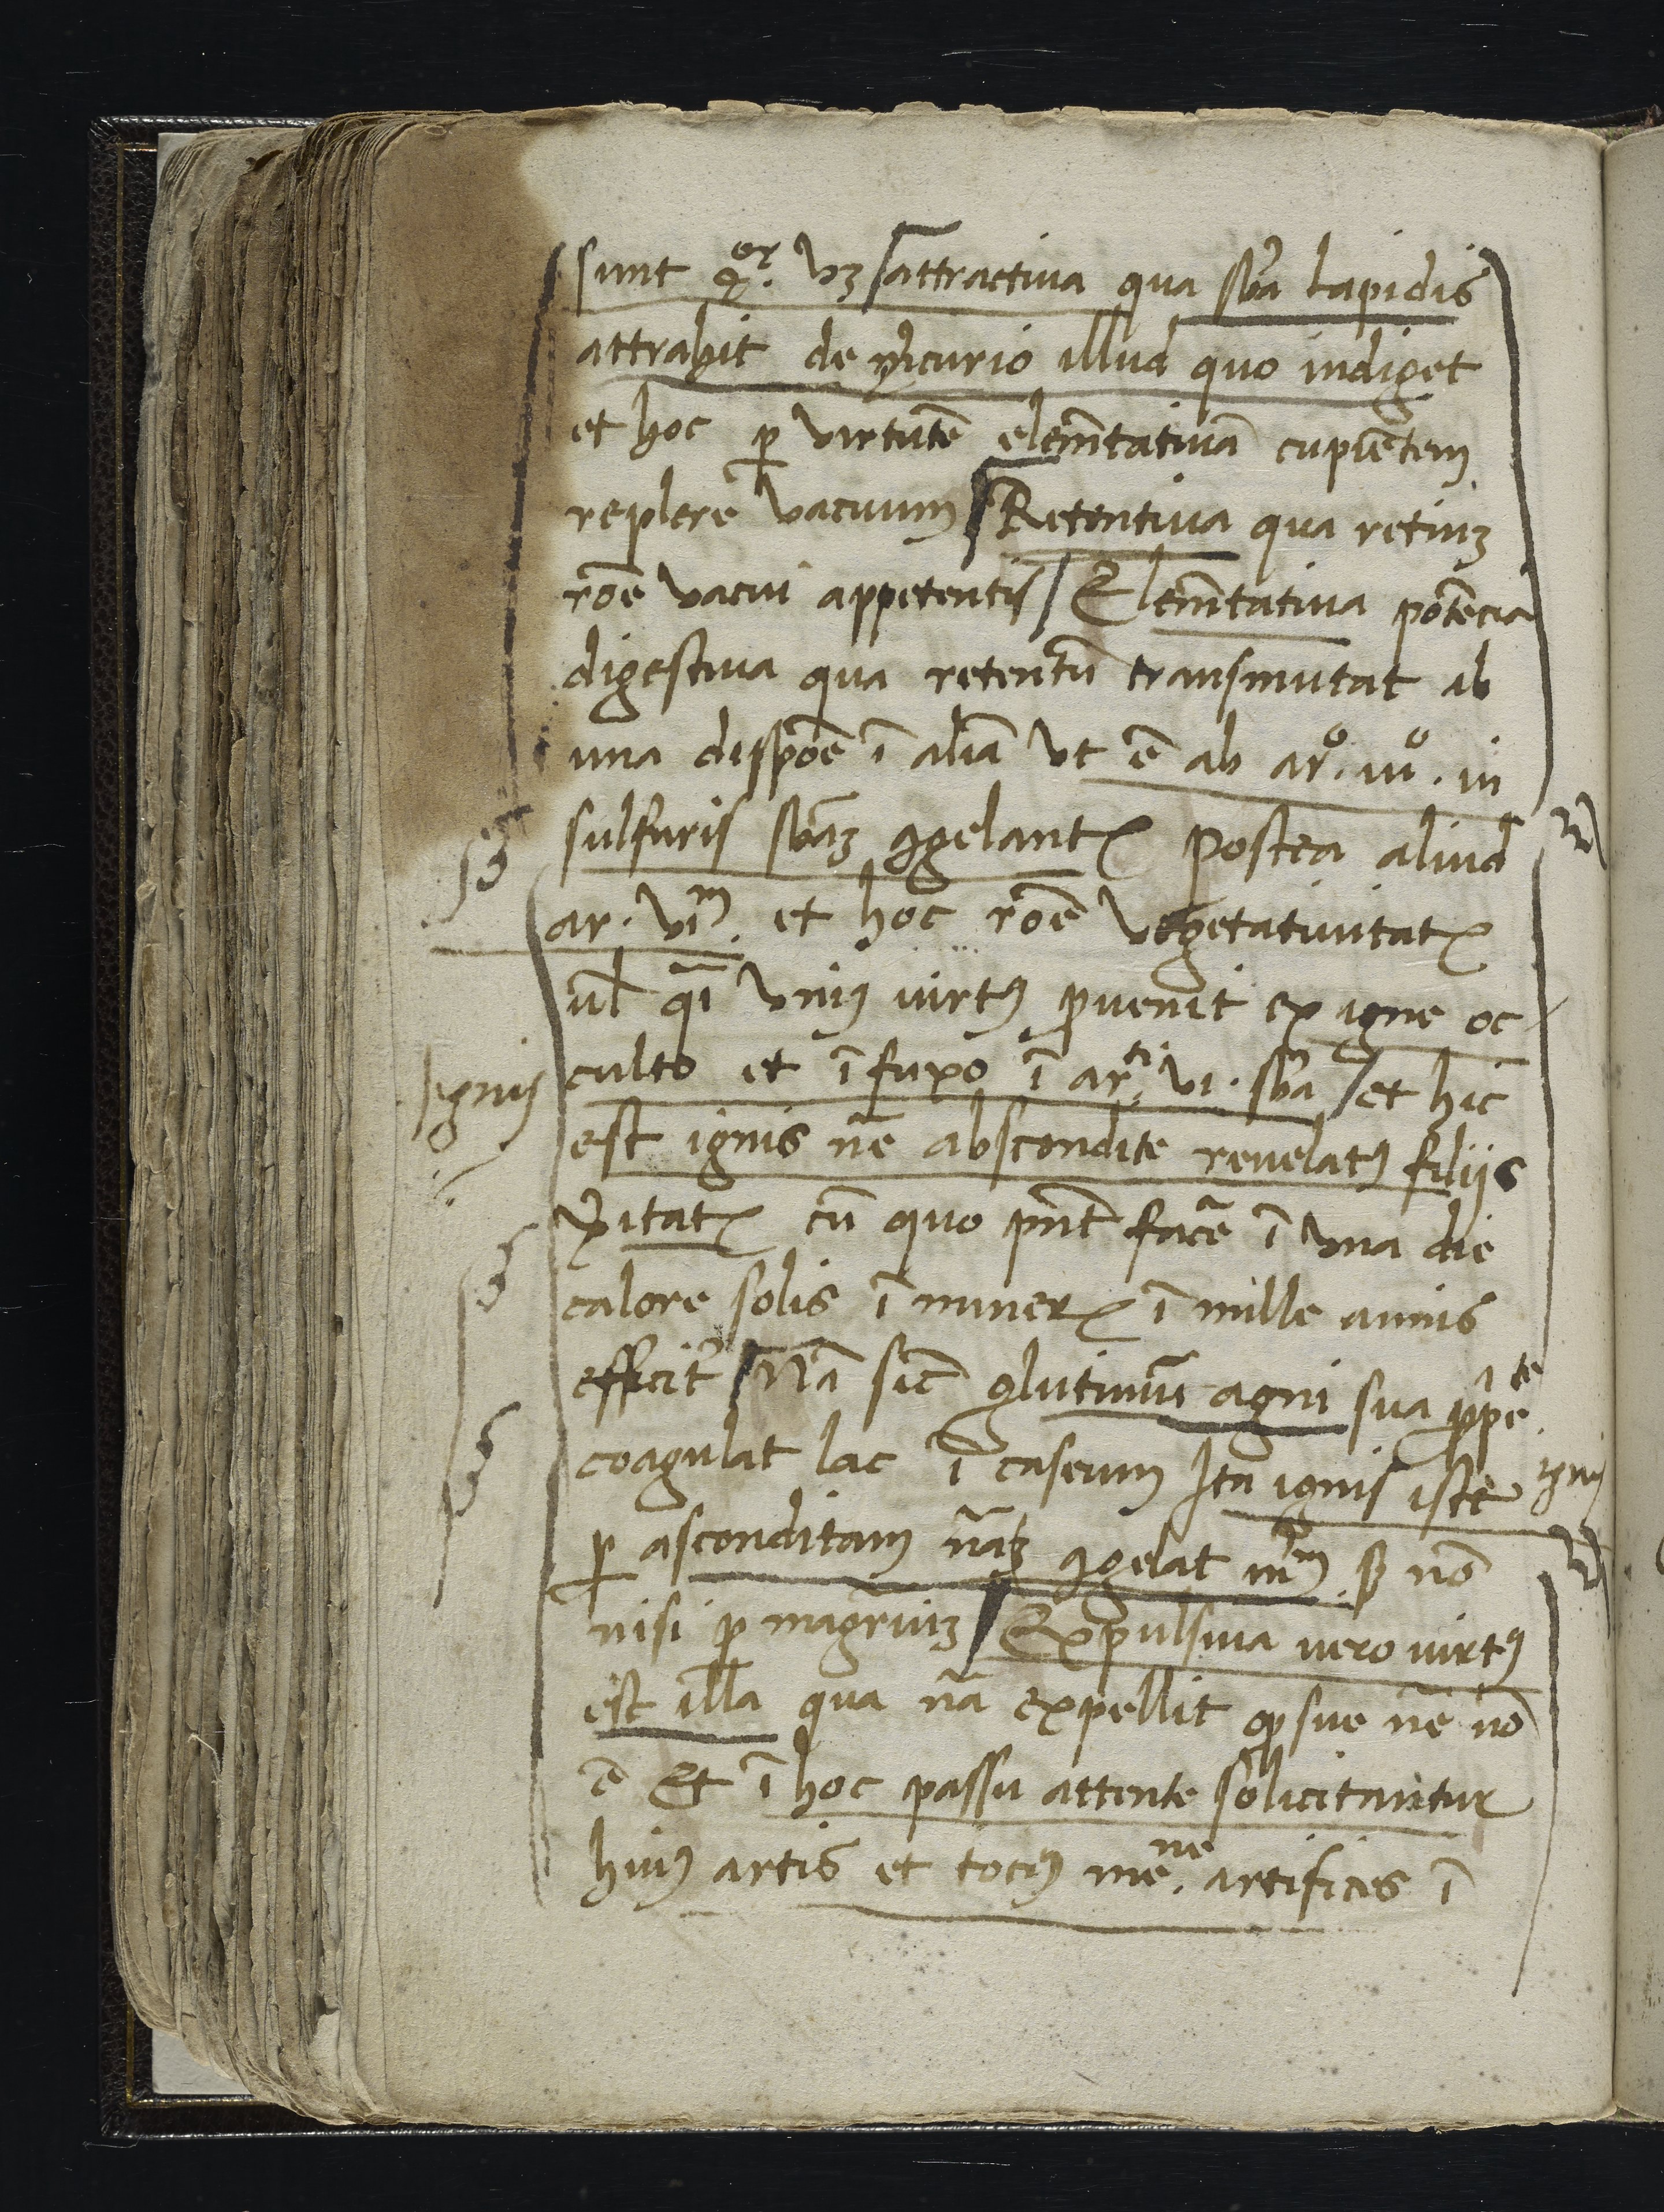 sunt 4or. vꝫ attractiua qua sb̃a lapidis
attrahit de m̃curio illud quo indiget
et hoc ꝑ virtutẽ elem̃tatiuã cupiẽtem
replere vacuum Retentiua qua retinꝫ
rõe vacui appetentis / Elem̃tatiua potẽcia
digestiua qua retentũ transmutat ab
una dispõe ĩ aliã vt ẽ ab aro. uo. in
sulfuris sb̃aꝫ ꝯgelantꝭ postea aliud
ar. vim. et hoc rõe vegetatiuitatꝭ
ul̃ qñ Vniꝰ uirtꝰ ꝓuenit ex igne oc
culto et ĩfuxo ĩ arti. vi. sb̃a / et hic
est ignis nr̃e absconditе reuelatꝰ filijs
ṽitatꝭ cũ quo pñt facẽ ĩ vna die
calore solis ĩ minerꝭ ĩ mille annis
efficit̃ Nã sic glutinũ agni sua ꝓpte
coagulat lac ĩ caseum Ita ignis iste
ꝑ asconditam nãꝫ ꝯgelat mm̃ ꝫ nõ
nisi ꝑ magr̃iuꝫ Expulsiua uero uirtꝰ
est illa qua nã expellit qꝫ sue nẽ nõ
ẽ Et ĩ hoc passu attente solicitantur
huiꝰ artis et tociꝰ mẽne. artifices ĩ
ignis
ignis